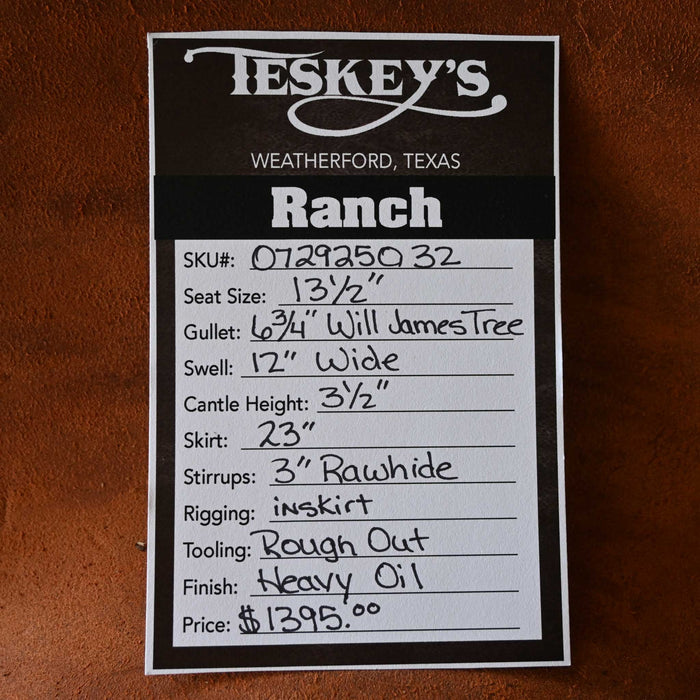 TESKEY'S
WEATHERFORD, TEXAS
Ranch
SKU#: 0729250 32
Seat Size: 13 1/2"
Gullet: 6 3/4" Will James Tree
Swell: 12" Wide
Cantle Height: 3 1/2"
Skirt: 23"
Stirrups: 3" Rawhide
Rigging: inskirt
Tooling: Rough Out
Finish: Heavy Oil
Price: $1395.00